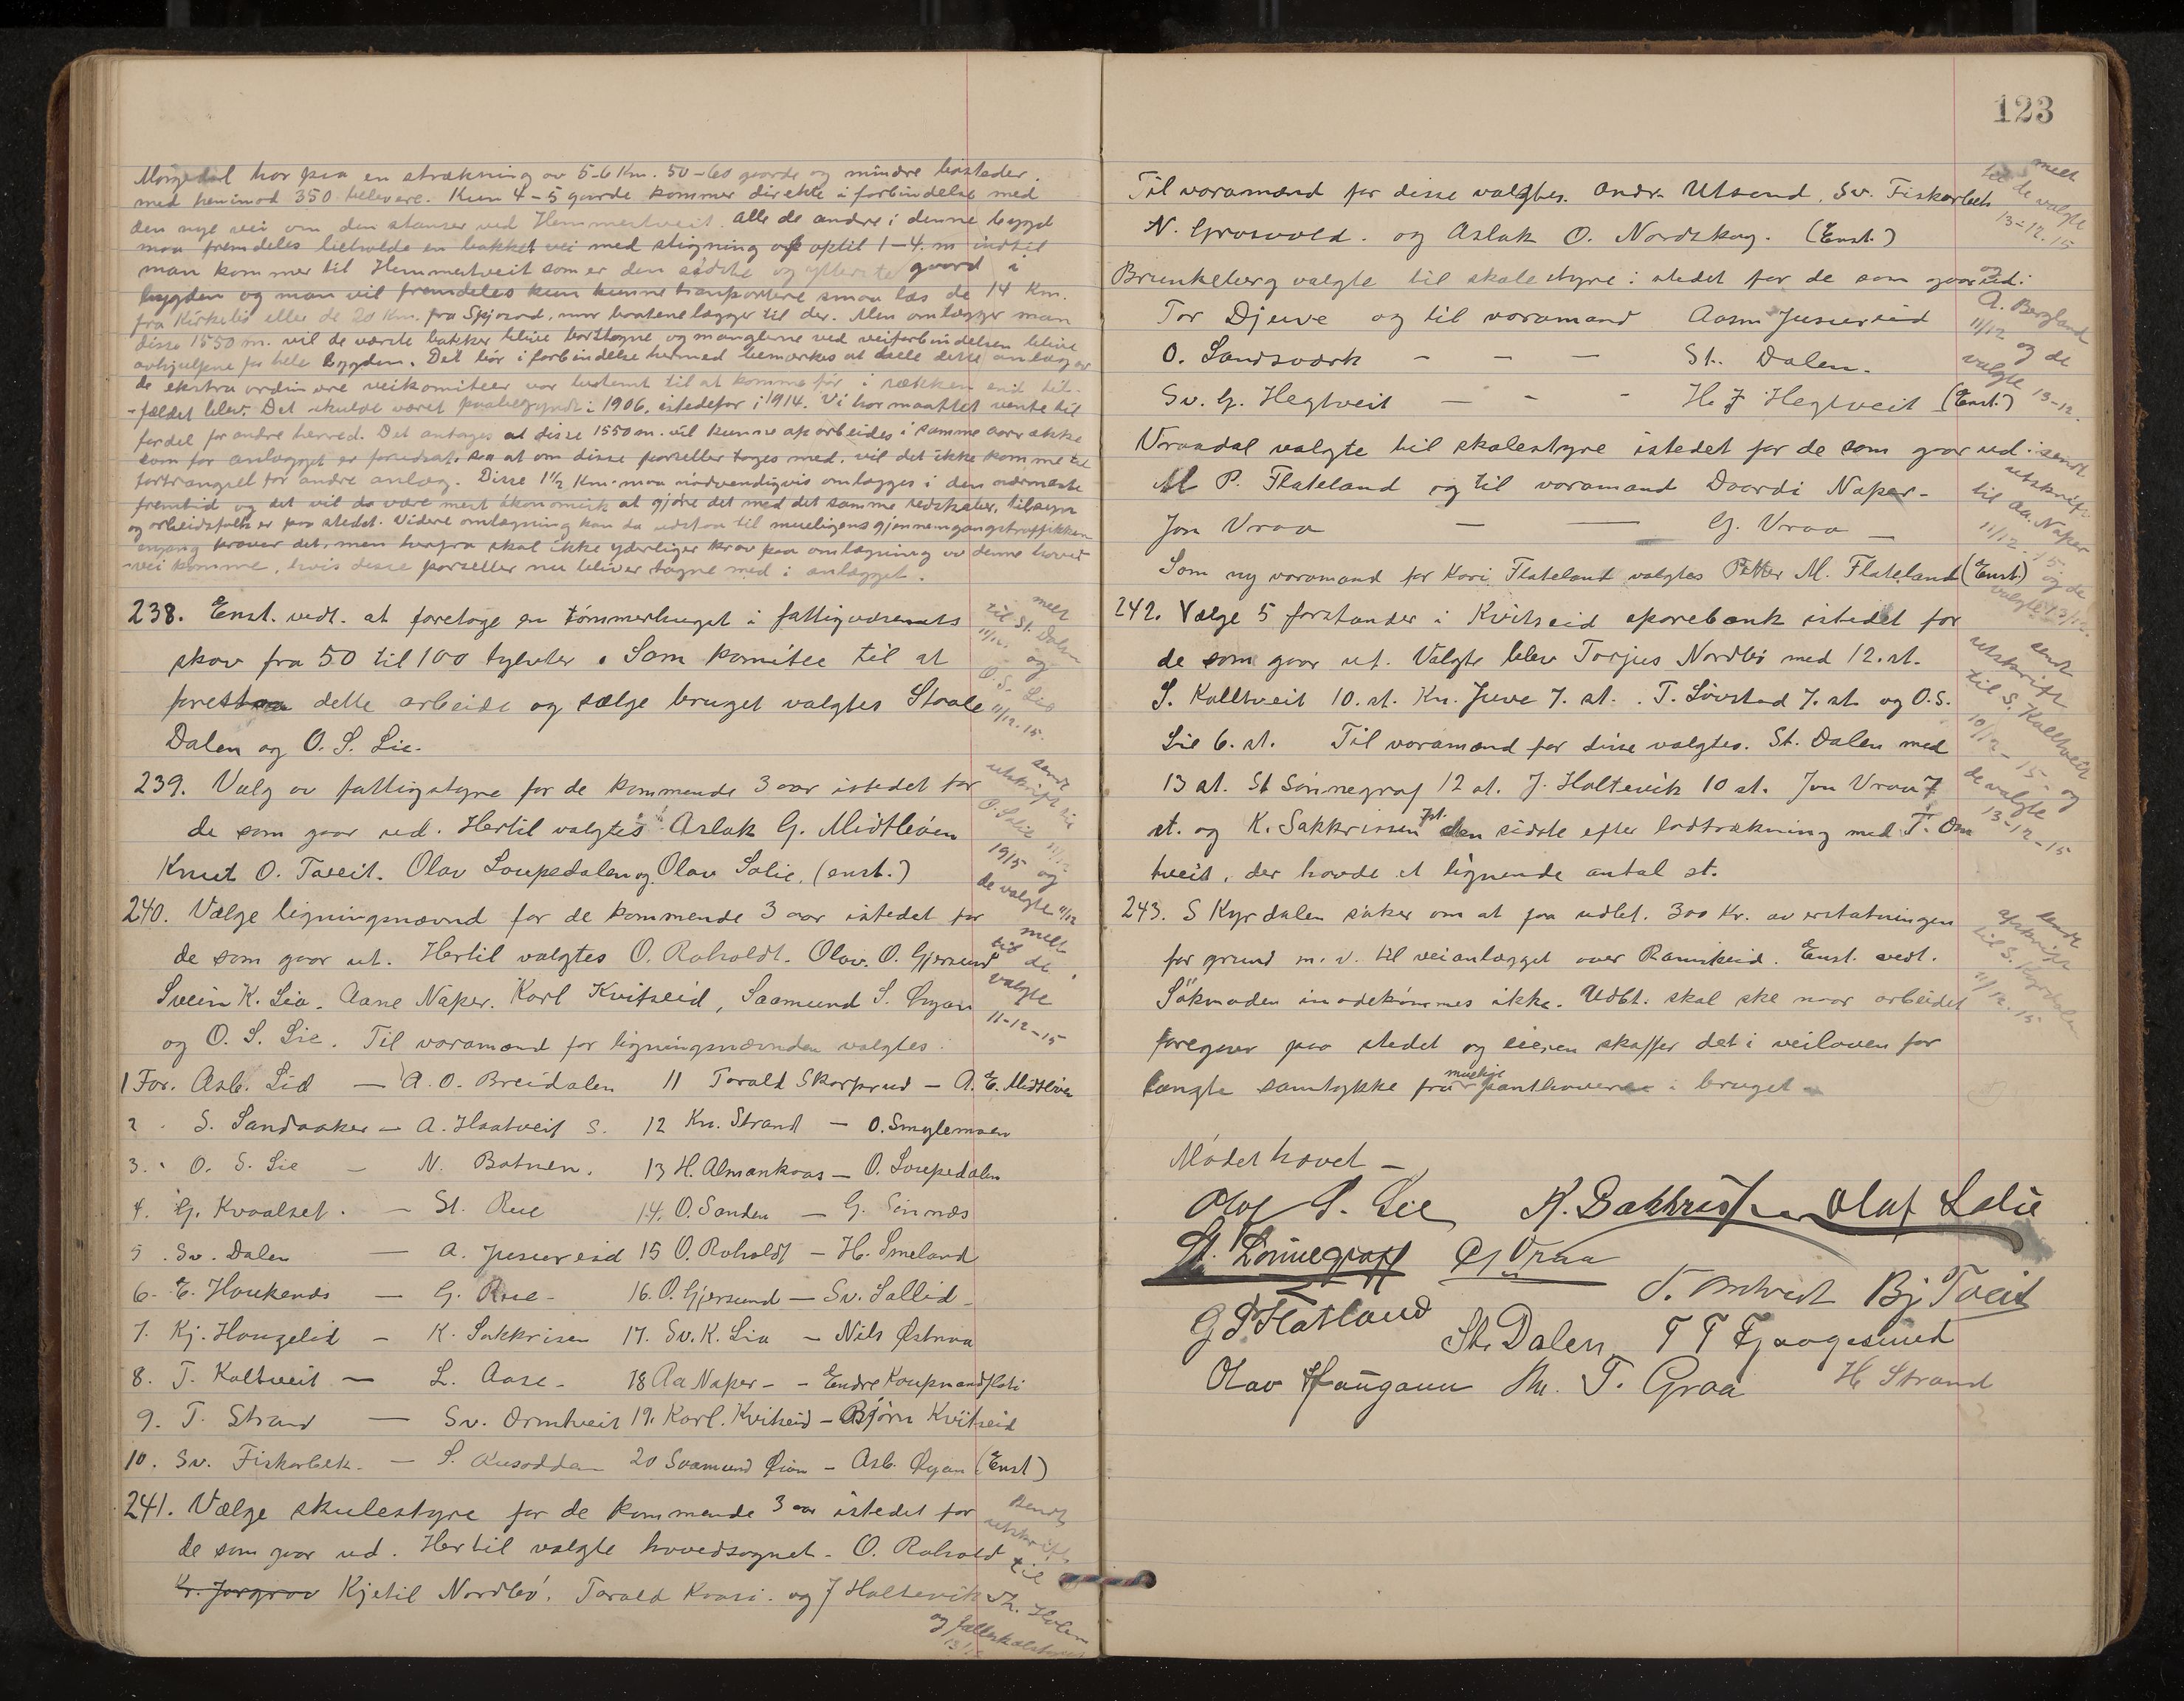 Morgedal har paa en strækning av 5-6 Km. 50-60 gaarde og mindre bosteder.
med henimod 350 beboere. Kun 4-5 gaarde kommer direkte i forbindelse med
den nye vei om den stanser ved Hemmestveit. Alle de andre i denne bygd
maa fremdeles beholde en bakket vei med stigning optil 1-4. m indtil
man kommer til Hemmestveit som er den sidste og ytterste gaard i
bygden og man vil fremdeles kun kunne transportere smaa las de 14 Km.
fra Kirkebø eller de 20 Km. fra naar baatene lægger til der. Men omlægger man
disse 1550 m. vil de værste bakker blive borttagne og manglerne ved veiforbindelsen blive
avhjulpne for hele bygden. Det bør i forbindelse hermed bemærkes at dette anlæg av
de ekstraordinære veikomiteer var bestemt til at komme før i rækken end
fældet blev. Det skulde været paabegyndt i 1906, istedefor i 1914. Vi har maattet vente til
fordel for andre herred. Det antages at disse 1550 m. vil kunne oparbeides i samme
som for anlægget er forudsat. saa at om disse parseller tages med, vil det ikke komme til
fortrængsel for andre anlæg. Disse 1½ Km. maa nødvendigvis omlægges i den nærmeste
fremtid og det vil da være mest økonomisk at gjøre det med det samme redskaber, tilsyn
og arbeidsfolk er paa stedet. Videre omlægning kan da udstaa til mueligens gjennemgangstrafikken
engang kræver det, men herfra skal ikke yderliger krav paa omlægning av denne hoved
-vei komme, hvis disse parseller nu bliver tagne med i anlægget.
238. Enst. vedt. at foretage en tømmerhugst i fattigvæsenets
skov fra 50 til 100 tylvter. Som komitee til at
forestaa dette arbeide og sælge bruget valgtes Staale
Dalen og O. S. Lie.
melt
til St. Dalen
11/12. og
O. S. Lie
11/12.15.
239. Valg av fattigstyre for de kommende 3 aar istedet for
de som gaar ud. Hertil valgtes Aslak G. Midtbøen
Knut O. Tveit. Olav Loupedalen og Olav Solie. (enst.)
sendt
utskrift til
O. Solie
1915 og
de valgte 11/12
240. Vælge ligningsnævnd for de kommende 3 aar istedet for
de som gaar ut. Hertil valgtes O. Roholdt. Olav. O. Gjersund
Svein K. Lia. Aane Naper. Karl Kvitseid, Saamund S. Øyan
og O. S. Lie. Til varamænd for ligningsnævnden valgtes:
melt
til de
valgte
11-12-15
1 For. Asb. Lid — A. O. Breidalen 11 Torald Skarprud — A. E. Midtbøen
2 . S. Sandaaker — A. Haatveit S. 12 Kn. Strand — O. Smylemoen
3. . O. S. Lie — N. Botnen. 13 H. Almankaas — O. Loupedalen
4. G. Kvaalset. — St. Rue 14. O. Sanden — G. Sinnæs
5 . Sv. Dalen — A. Jusureid 15 O. Roholdt — H. Smeland
6. E. Haukenæs — G. Rue — 16. O. Gjersund — Sv. Sallid
7. Kj. Haugelid — K. Sakkrisen 17. Sv. K. Lia — Nils Østraa
8. T. Kaltveit — L. Aase — 18 Aa Naper — Endre Kaupmandflati
9. T. Strand — Sv. Ormtveit 19. Karl. Kvitseid — Bjørn Kvitseid
10. Sv. Fiskerbek. — S. Kusodden 20 Saamund Øian — Asb. Øyan (Enst)
241. Vælge skulestyre for de kommende 3 aar istedet for
de som gaar ud. Hertil valgte hovedsognet. O. Rohold
Kr. Jorgrav Kjetil Nordbø. Torald Kvasi. og J Haltevik
Sendt
utskrift
til
123
Til varamænd for disse valgtes. Andr. Utsund. Sv. Fiskerbek
N. Grosvold. og Aslak O. Nordskog. (Enst.)
melt
til de valgte
13-12.15
Brunkeberg valgte til skolestyre: istedet for de som gaar ud:
Tor Djuve og til varamand Aasm Jusureid
O. Landsværk — — — St. Dalen.
Sv. G. Hegtveit — - - H. J Hegtveit (Enst.)
og
A. Bergland
11/12 og de
valgte 13-12.
Vraadal valgte til skolestyre istedet for de som gaar ud:
M P. Flateland og til varamand Daardi Naper —
Jon Vraa — — G. Vraa —
Som ny varamand for Kari Flateland valgtes Petter M. Flateland (Enst.)
sendt
utskrift
til Aa. Naper
11/12. 15 og de
valgte 13/12.
242. Vælge 5 forstander i Kvitseid sparebank istedet for
de som gaar ut. Valgte blev Torjus Nordbø med 12. st.
S. Kalltveit 10. st. Kn. Juve 7. st. . T. Lövstad 7. st. og O. S.
Lie 6. st. Til varamænd for disse valgtes. St. Dalen med
13 st. St Sönnegraf 12 st. J. Haltevik 10 st. Jon Vraa 7
st. og K. Sakkrissen 7 st. den sidste efter lodtrækning med T. Om
tveit, der havde et lignende antal st.
sendt
utskrift
til S. Kalltveit
10/12-15 og
de valgte
13-12-15
243. S Kyrdalen søker om at faa udbt. 300 Kr. av erstatningen
for grund m. v. til veianlægget over Ramskeid. Enst. vedt.
Sökmaden imødekømmes ikke. Udbt. skal ske naar arbeidet
foregaar paa stedet og eieren skaffer det i veiloven for
langte samtykke fra mulige panthavere i bruget —
sendt
afskrift
til S. Kyrdalen
11/12.15
Mödet hævet —
Olaf S. Lie K. Sakkrissen Olaf Solie
St. Lönnegraff G Vraa
T. Omtveit Bj Tveit
G P Flatland St. Dalen T T Fjaagesund
Olav Haugann Kn. T. Graa H Strand